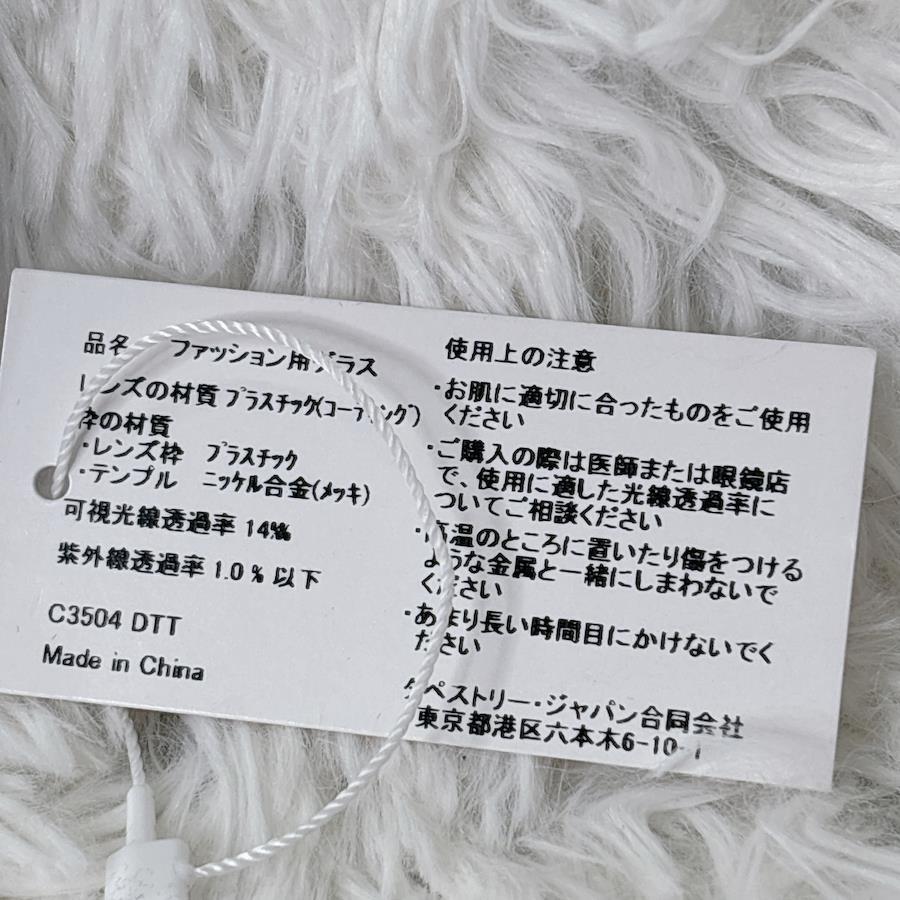 品名 ファッション用グラス
レンズの材質 プラスチック(コーティング)
枠の材質
・レンズ枠 プラスチック
・テンプル ニッケル合金(メッキ)
可視光線透過率 14%
紫外線透過率 1.0%以下
C3504 DTT
Made in China
使用上の注意
・お肌に適切に合ったものをご使用
ください
・ご購入の際は医師または眼鏡店
で、使用に適した光線透過率に
ついてご相談ください
・高温のところに置いたり傷をつける
ような金属と一緒にしまわないで
ください
・あまり長い時間目にかけないでく
ださい
タペストリー・ジャパン合同会社
東京都港区六本木6-10-1